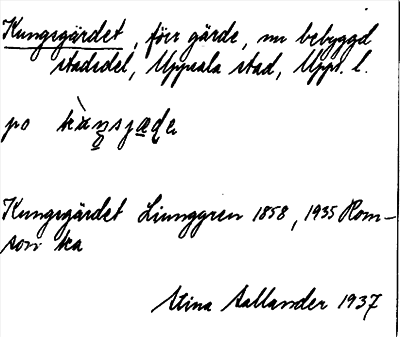 Kungsgärdet, förr gärde, nu bebyggd
stadsdel, Uppsala stad, Uppl. l.
po
Kungsgärdet Ljunggren 1858, 1935 Rom-
son ka
Stina Sallander 1937